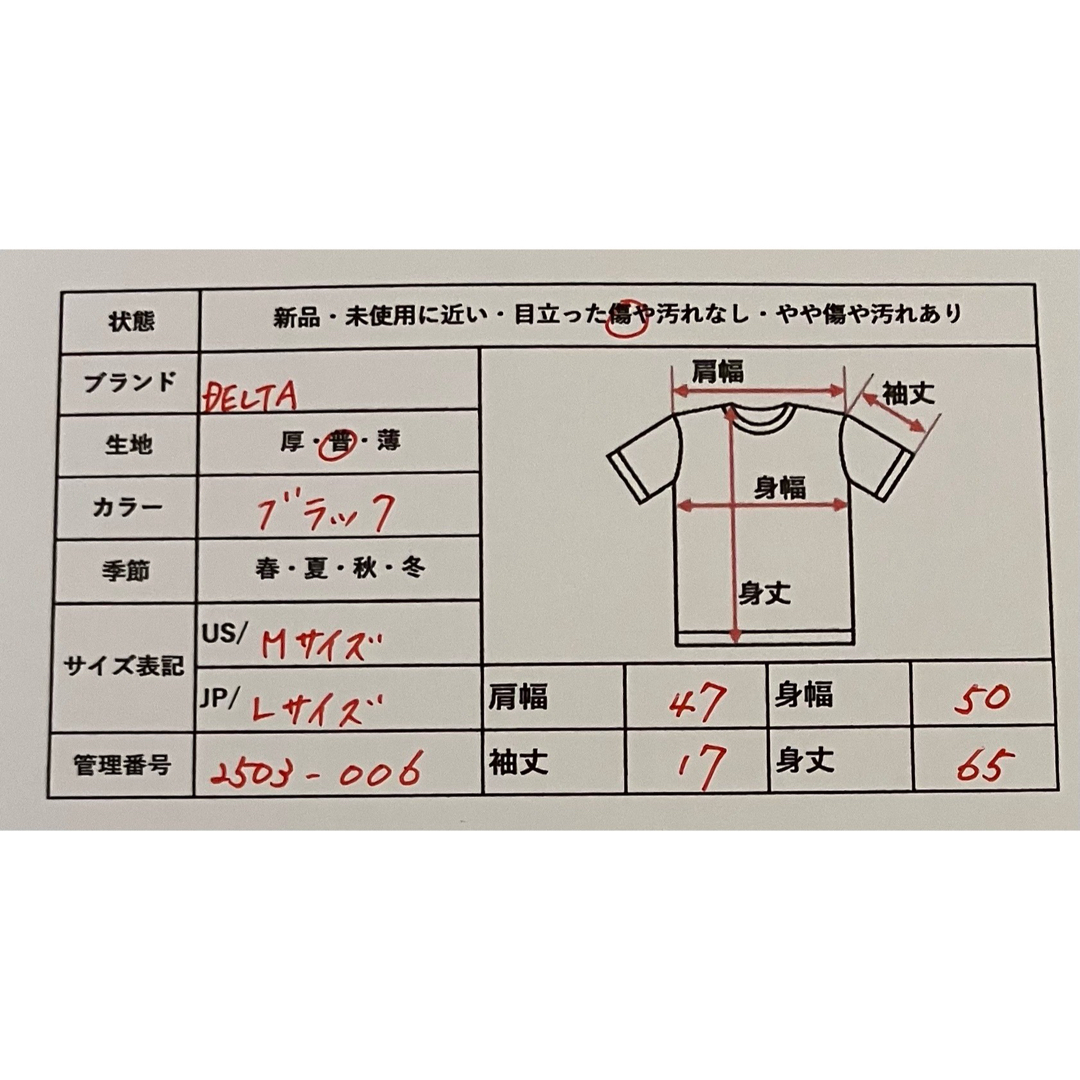 状態 新品・未使用に近い・目立った傷や汚れなし・やや傷や汚れあり
ブランド DELTA
生地 厚・普・薄
カラー ブラック
季節 春・夏・秋・冬
サイズ表記 US/ Mサイズ
JP/ Lサイズ
管理番号 2503-006
肩幅
袖丈
身幅
身丈
肩幅 47 身幅 50
袖丈 17 身丈 65